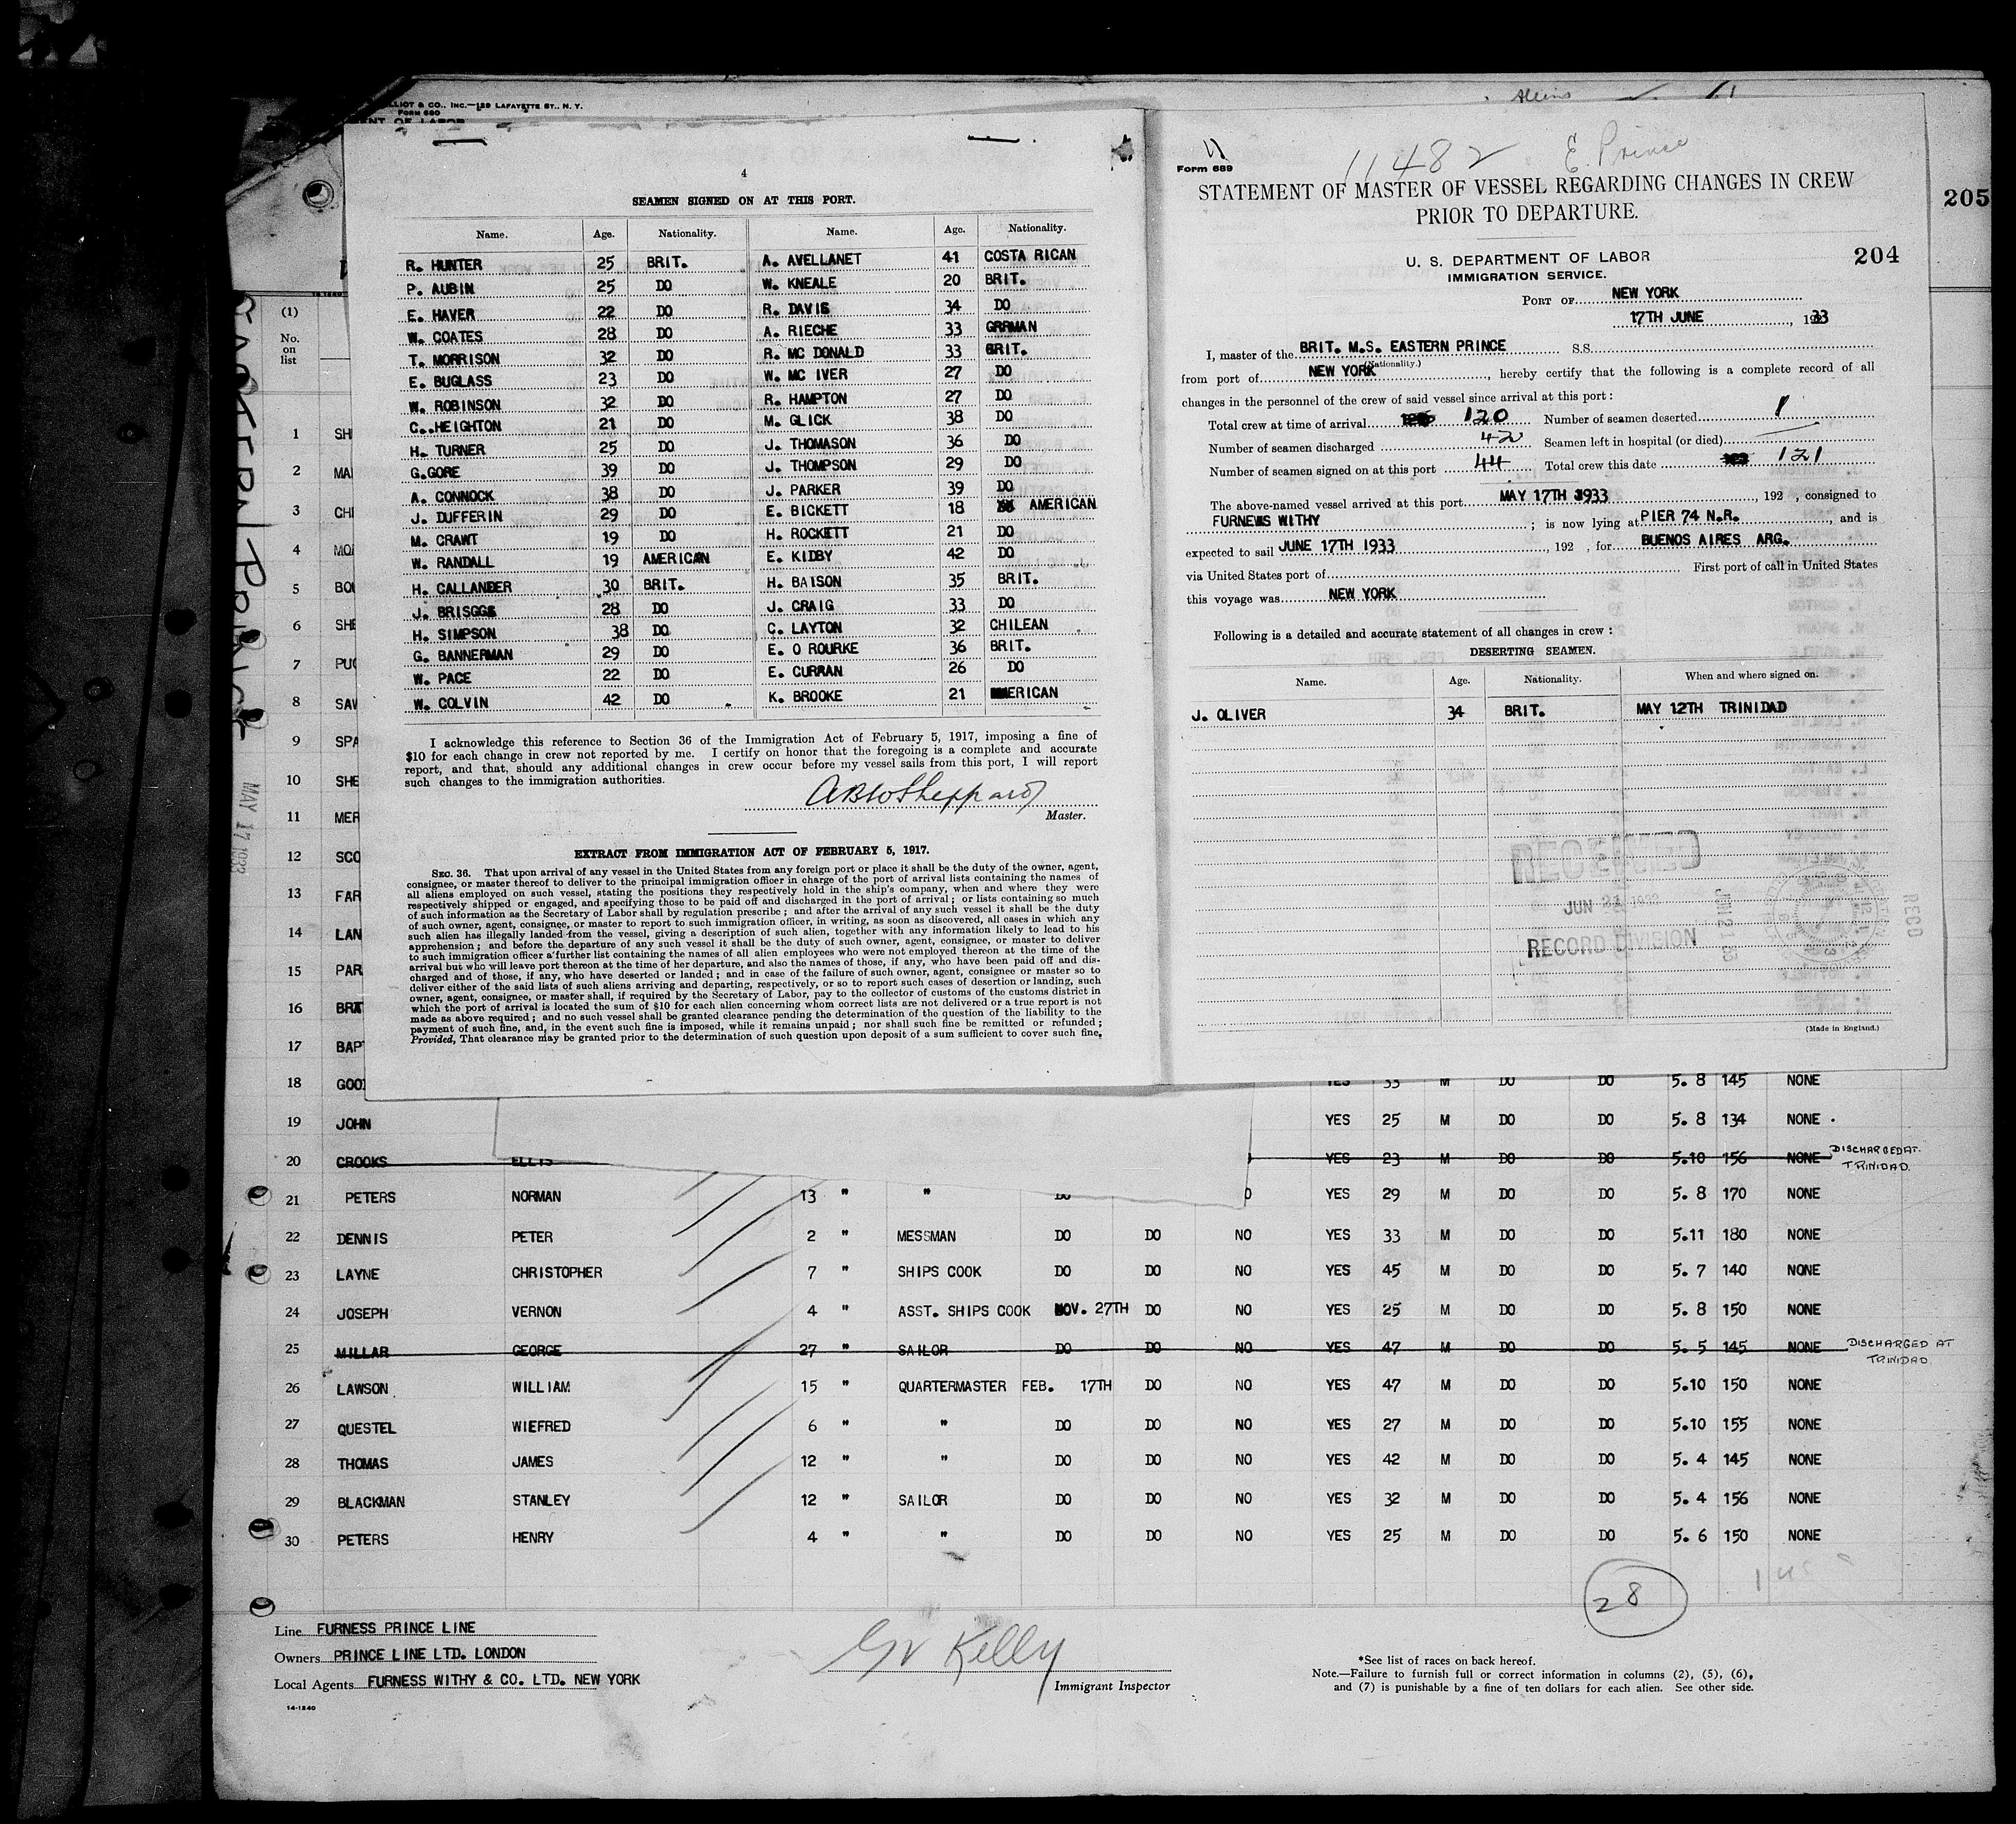 LLIOT & CO., INC.—129 LAFAYETTE ST., N. Y.
FORM 680
4
SEAMEN SIGNED ON AT THIS PORT.
Name. Age. Nationality. Name. Age. Nationality.
R. HUNTER 25 BRIT. A. AVELLANET 41 COSTA RICAN
P. AUBIN 25 DO W. KNEALE 20 BRIT.
E. HAVER 22 DO R. DAVIS 34 DO
W. COATES 28 DO A. RIECHE 33 GRRMAN
T. MORRISON 32 DO R. MC DONALD 33 BRIT.
E. BUGLASS 23 DO W. MC IVER 27 DO
W. ROBINSON 32 DO R. HAMPTON 27 DO
C..HEIGHTON 21 DO M. GLICK 38 DO
H. TURNER 25 DO J. THOMASON 36 DO
G.GORE 39 DO J. THOMPSON 29 DO
A. CONNOCK 38 DO J. PARKER 39 DO
J. DUFFERIN 29 DO E. BICKETT 18 AMERICAN
M. CRAWT 19 DO H. ROCKETT 21 DO
W. RANDALL 19 AMERICAN E. KIDBY 42 DO
H. CALLANDER 30 BRIT. H. BAISON 35 BRIT.
J. BRISGGS 28 DO J. CRAIG 33 DO
H. SIMPSON 38 DO C. LAYTON 32 CHILEAN
G. BANNERMAN 29 DO E. O ROURKE 36 BRIT.
W. PACE 22 DO E. CURRAN 26 DO
W. COLVIN 42 DO K. BROOKE 21 AMERICAN
I acknowledge this reference to Section 36 of the Immigration Act of February 5, 1917, imposing a fine of
$10 for each change in crew not reported by me. I certify on honor that the foregoing is a complete and accurate
report, and that, should any additional changes in crew occur before my vessel sails from this port, I will report
such changes to the immigration authorities.
ABWSheppard
Master.
EXTRACT FROM IMMIGRATION ACT OF FEBRUARY 5, 1917.
SEC. 36. That upon arrival of any vessel in the United States from any foreign port or place it shall be the duty of the owner, agent,
consignee, or master thereof to deliver to the principal immigration officer in charge of the port of arrival lists containing the names of
all aliens employed on such vessel, stating the positions they respectively hold in the ship's company, when and where they were
respectively shipped or engaged, and specifying those to be paid off and discharged in the port of arrival; or lists containing so much
of such information as the Secretary of Labor shall by regulation prescribe; and after the arrival of any such vessel it shall be the duty
of such owner, agent, consignee, or master to report to such immigration officer, in writing, as soon as discovered, all cases in which any
such alien has illegally landed from the vessel, giving a description of such alien, together with any information likely to lead to his
apprehension; and before the departure of any such vessel it shall be the duty of such owner, agent, consignee, or master to deliver
to such immigration officer a further list containing the names of all alien employees who were not employed thereon at the time of the
arrival but who will leave port thereon at the time of her departure, and also the names of those, if any, who have been paid off and dis-
charged and of those, if any, who have deserted or landed; and in case of the failure of such owner, agent, consignee or master so to
deliver either of the said lists of such aliens arriving and departing, respectively, or so to report such cases of desertion or landing, such
owner, agent, consignee, or master shall, if required by the Secretary of Labor, pay to the collector of customs of the customs district in
which the port of arrival is located the sum of $10 for each alien concerning whom correct lists are not delivered or a true report is not
made as above required; and no such vessel shall be granted clearance pending the determination of the question of the liability to the
payment of such fine, and, in the event such fine is imposed, while it remains unpaid; nor shall such fine be remitted or refunded;
Provided, That clearance may be granted prior to the determination of such question upon deposit of a sum sufficient to cover such fine.
11482 E. Prince
Form 689
STATEMENT OF MASTER OF VESSEL REGARDING CHANGES IN CREW
PRIOR TO DEPARTURE.
205
U. S. DEPARTMENT OF LABOR
IMMIGRATION SERVICE.
204
PORT OF NEW YORK
17TH JUNE, 1933
I, master of the BRIT. M.S. EASTERN PRINCE S.S.
(Nationality.)
from port of NEW YORK, hereby certify that the following is a complete record of all
changes in the personnel of the crew of said vessel since arrival at this port:
Total crew at time of arrival 120 Number of seamen deserted 1
Number of seamen discharged 42 Seamen left in hospital (or died)
Number of seamen signed on at this port 44 Total crew this date 121
The above-named vessel arrived at this port MAY 17TH 1933, 192 , consigned to
FURNEWS WITHY; is now lying at PIER 74 N.R., and is
expected to sail JUNE 17TH 1933, 192 , for BUENOS AIRES ARG.
via United States port of First port of call in United States
this voyage was NEW YORK
Following is a detailed and accurate statement of all changes in crew:
DESERTING SEAMEN.
Name. Age. Nationality. When and where signed on.
J. OLIVER 34 BRIT. MAY 12TH TRINIDAD
RECEIVED
JUN 21 1933
RECORD DIVISION
REC'D
(Made in England.)
EASTERN PRINCE
MAY 17 1933
(1)
No.
on
list
1 SH
2 MA
3 CH
4 MO
5 BO
6 SHE
7 PU
8 SA
9 SPA
10 SHE
11 MER
12 SCO
13 FAR
14 LAN
15 PAR
16 BRA
17 BAP
18 GOO YES 33 M DO DO 5. 8 145 NONE
19 JOHN YES 25 M DO DO 5. 8 134 NONE
20 CROOKS ELLIS YES 23 M DO DO 5.10 156 NONE DISCHARGED AT
TRINIDAD.
21 PETERS NORMAN 13 " " DO YES 29 M DO DO 5. 8 170 NONE
22 DENNIS PETER 2 " MESSMAN DO DO NO YES 33 M DO DO 5.11 180 NONE
23 LAYNE CHRISTOPHER 7 " SHIPS COOK DO DO NO YES 45 M DO DO 5. 7 140 NONE
24 JOSEPH VERNON 4 " ASST. SHIPS COOK NOV. 27TH DO NO YES 25 M DO DO 5. 8 150 NONE
25 MILLAR GEORGE 27 " SAILOR DO DO NO YES 47 M DO DO 5. 5 145 NONE DISCHARGED AT
TRINIDAD
26 LAWSON WILLIAM 15 " QUARTERMASTER FEB. 17TH DO NO YES 47 M DO DO 5.10 150 NONE
27 QUESTEL WIEFRED 6 " " DO DO NO YES 27 M DO DO 5.10 155 NONE
28 THOMAS JAMES 12 " " DO DO NO YES 42 M DO DO 5. 4 145 NONE
29 BLACKMAN STANLEY 12 " SAILOR DO DO NO YES 32 M DO DO 5. 4 156 NONE
30 PETERS HENRY 4 " " DO DO NO YES 25 M DO DO 5. 6 150 NONE
28
Line FURNESS PRINCE LINE
Owners PRINCE LINE LTD. LONDON
Local Agents FURNESS WITHY & CO. LTD. NEW YORK
14-1240
GV Kelly
Immigrant Inspector
*See list of races on back hereof.
Note.—Failure to furnish full or correct information in columns (2), (5), (6),
and (7) is punishable by a fine of ten dollars for each alien. See other side.